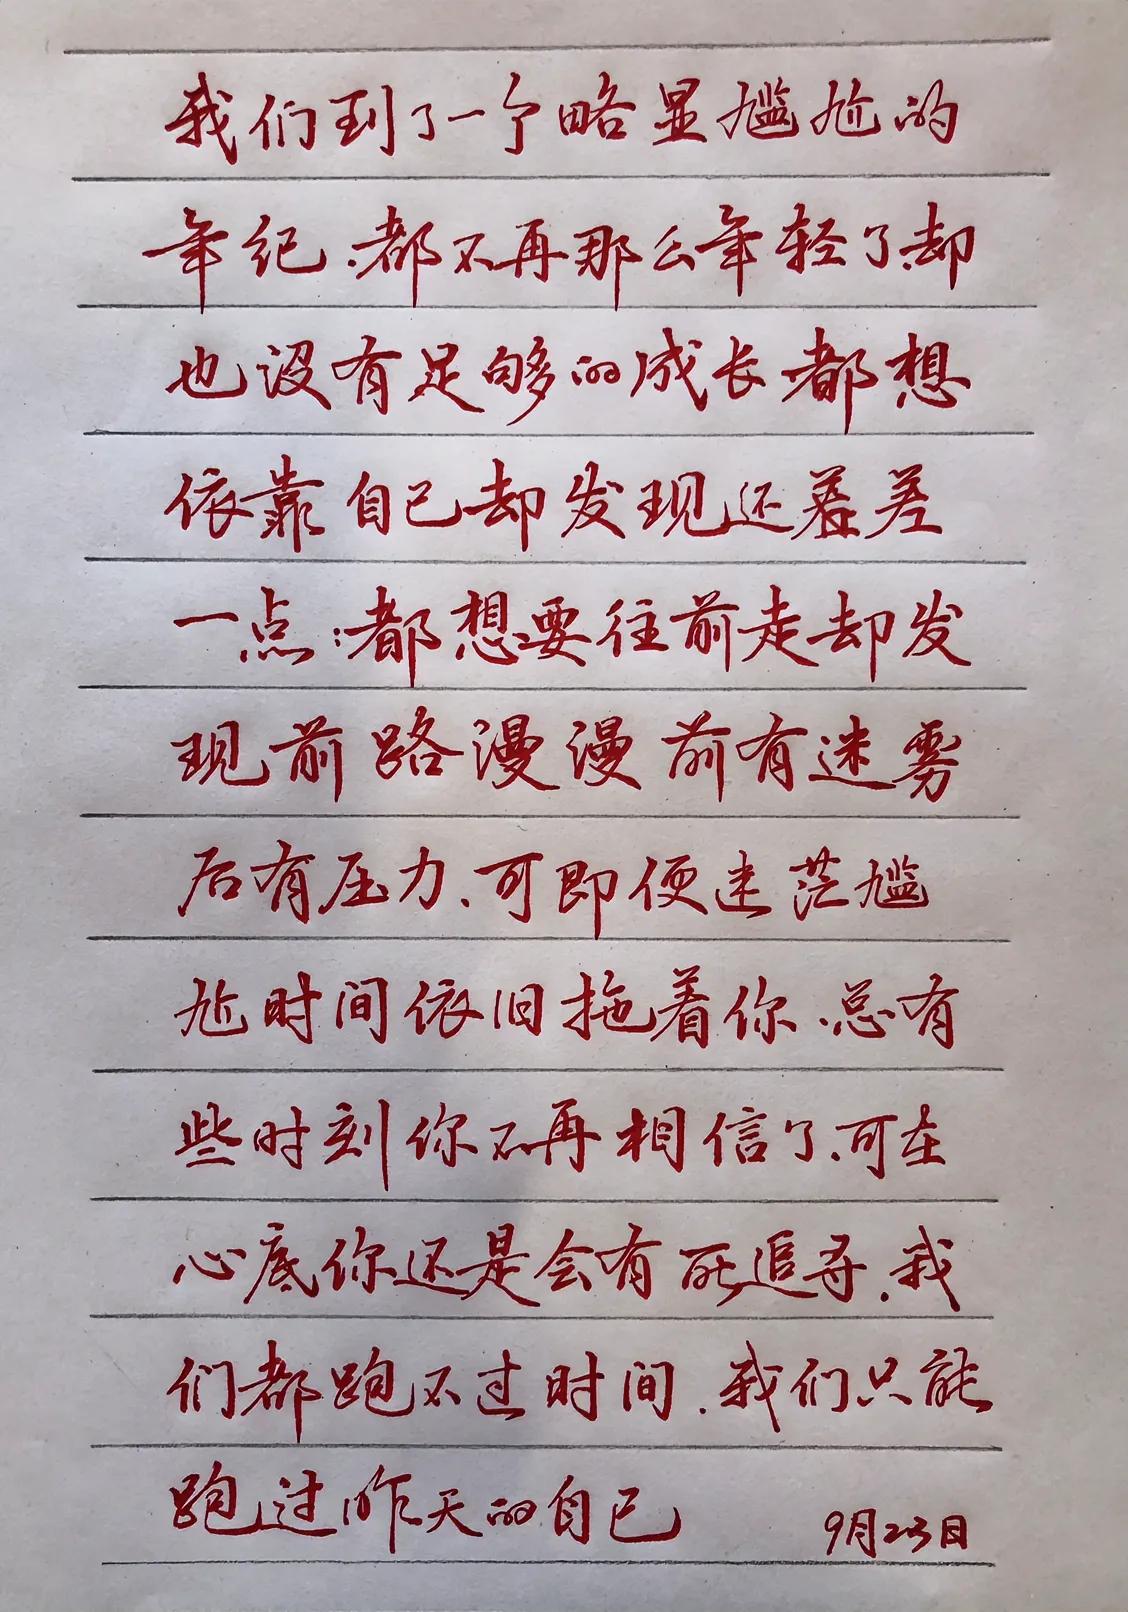 我们到了一个略显尴尬的
年纪.都不再那么年轻了.却
也没有足够的成长.都想
依靠自己却发现还差
一点:都想要往前走却发
现前路漫漫前有迷雾
后有压力.可即便迷茫尴
尬时间依旧拖着你.总有
些时刻你不再相信了.可在
心底你还是会有所追寻.我
们都跑不过时间.我们只能
跑过昨天的自己
9月23日